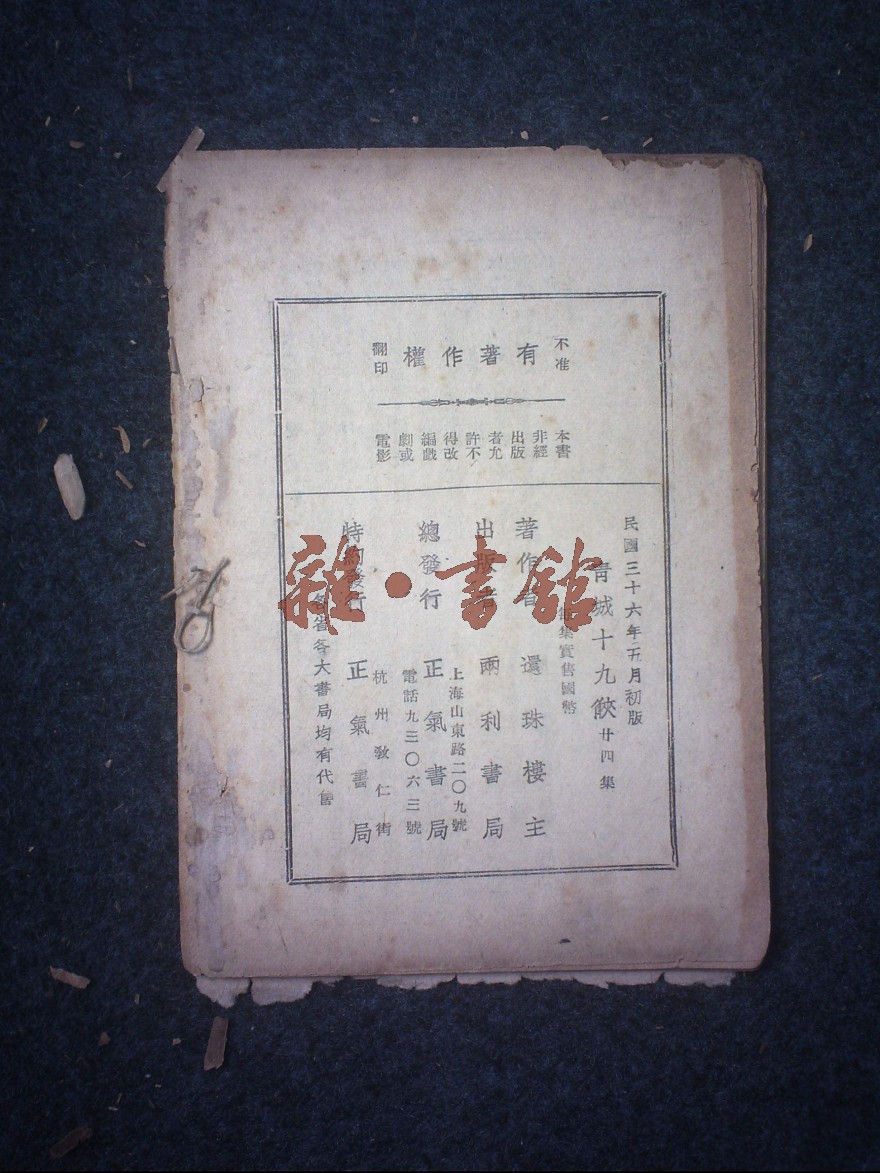 不准
有著作權
翻印
本書
非經
出版
者允
許不
得改
編戲
劇或
電影
民國三十六年五月初版
青城十九俠 廿四集
集實售國幣
著作者 還珠樓主
出版者 兩利書局
上海山東路二〇九號
總發行 正氣書局
電話九三〇六三號
杭州教仁街
特約發行 正氣書局
各省各大書局均有代售
雜·書館